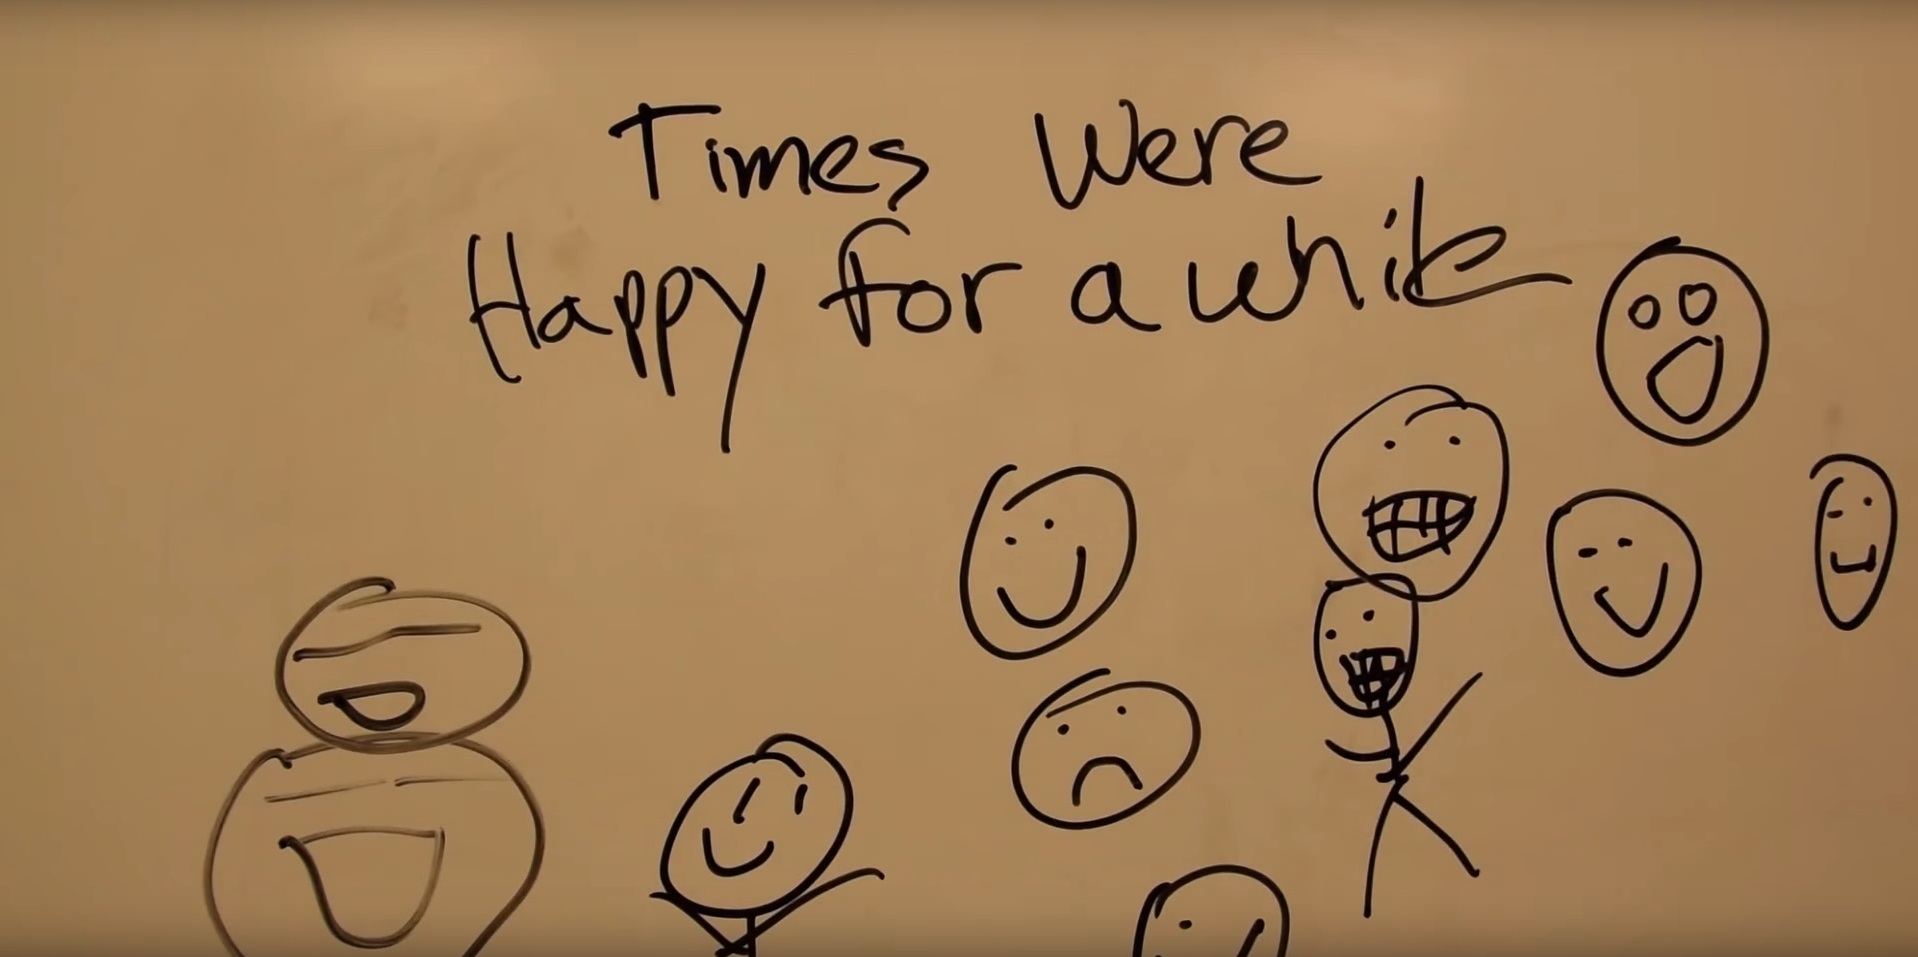 Times Were
Happy for a while